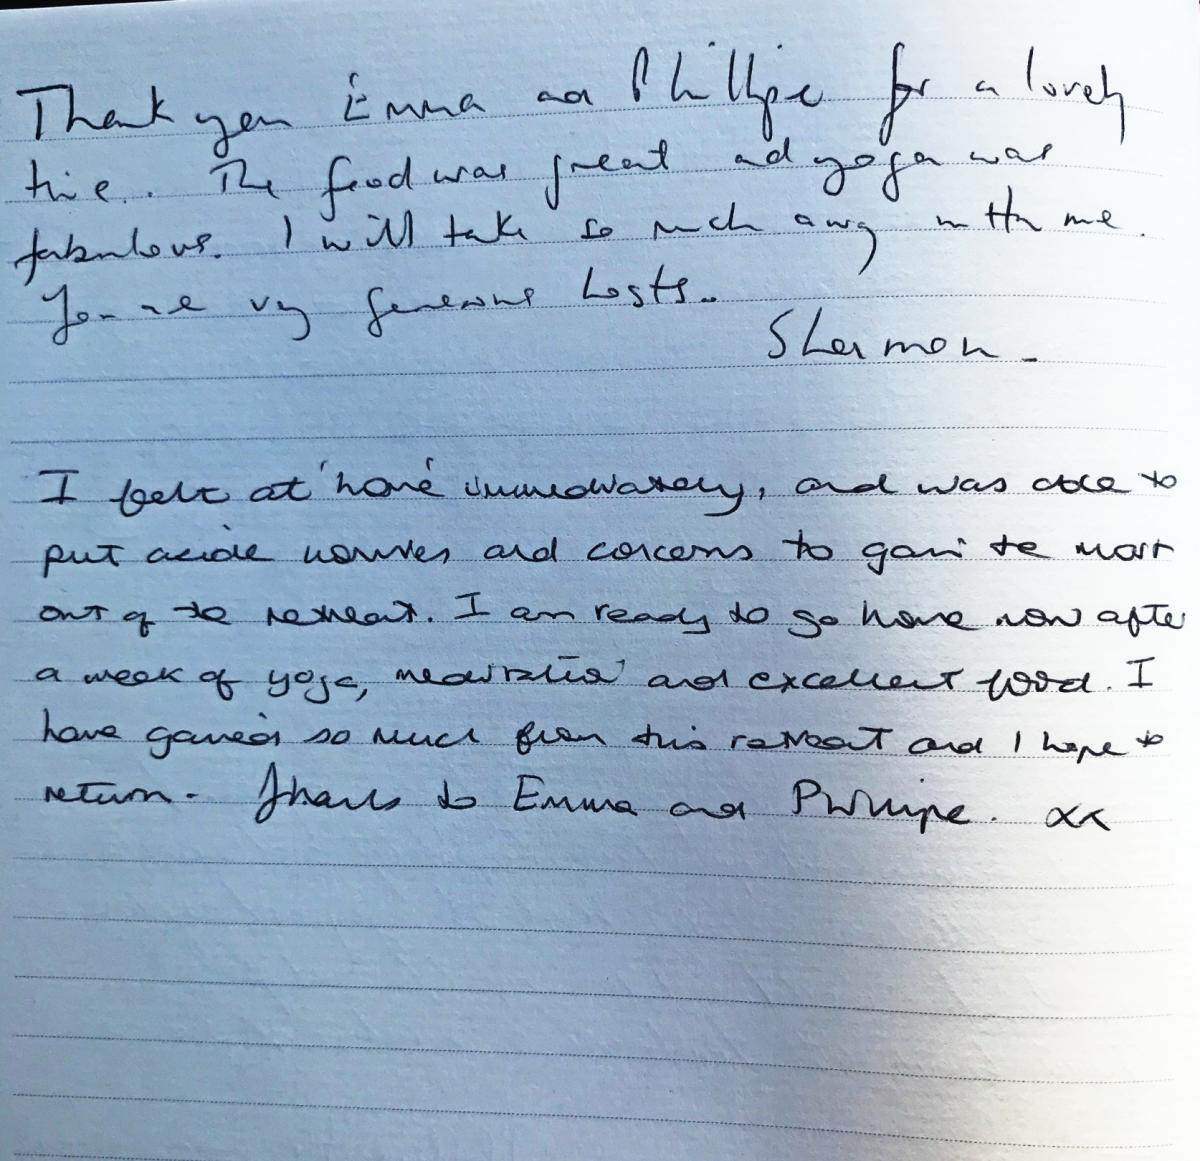 Thank you Emma and Phillipe for a lovely
time. The food was great and yoga was
fabulous. I will take so much away with me.
You are very generous hosts.
I felt at 'home' immediately, and was able to
put aside worries and concerns to gain the most
out of the retreat. I am ready to go home now after
a week of yoga, meditation and excellent food. I
have gained so much from this retreat and I hope to
return. Thanks to Emma and Phillipe. xx